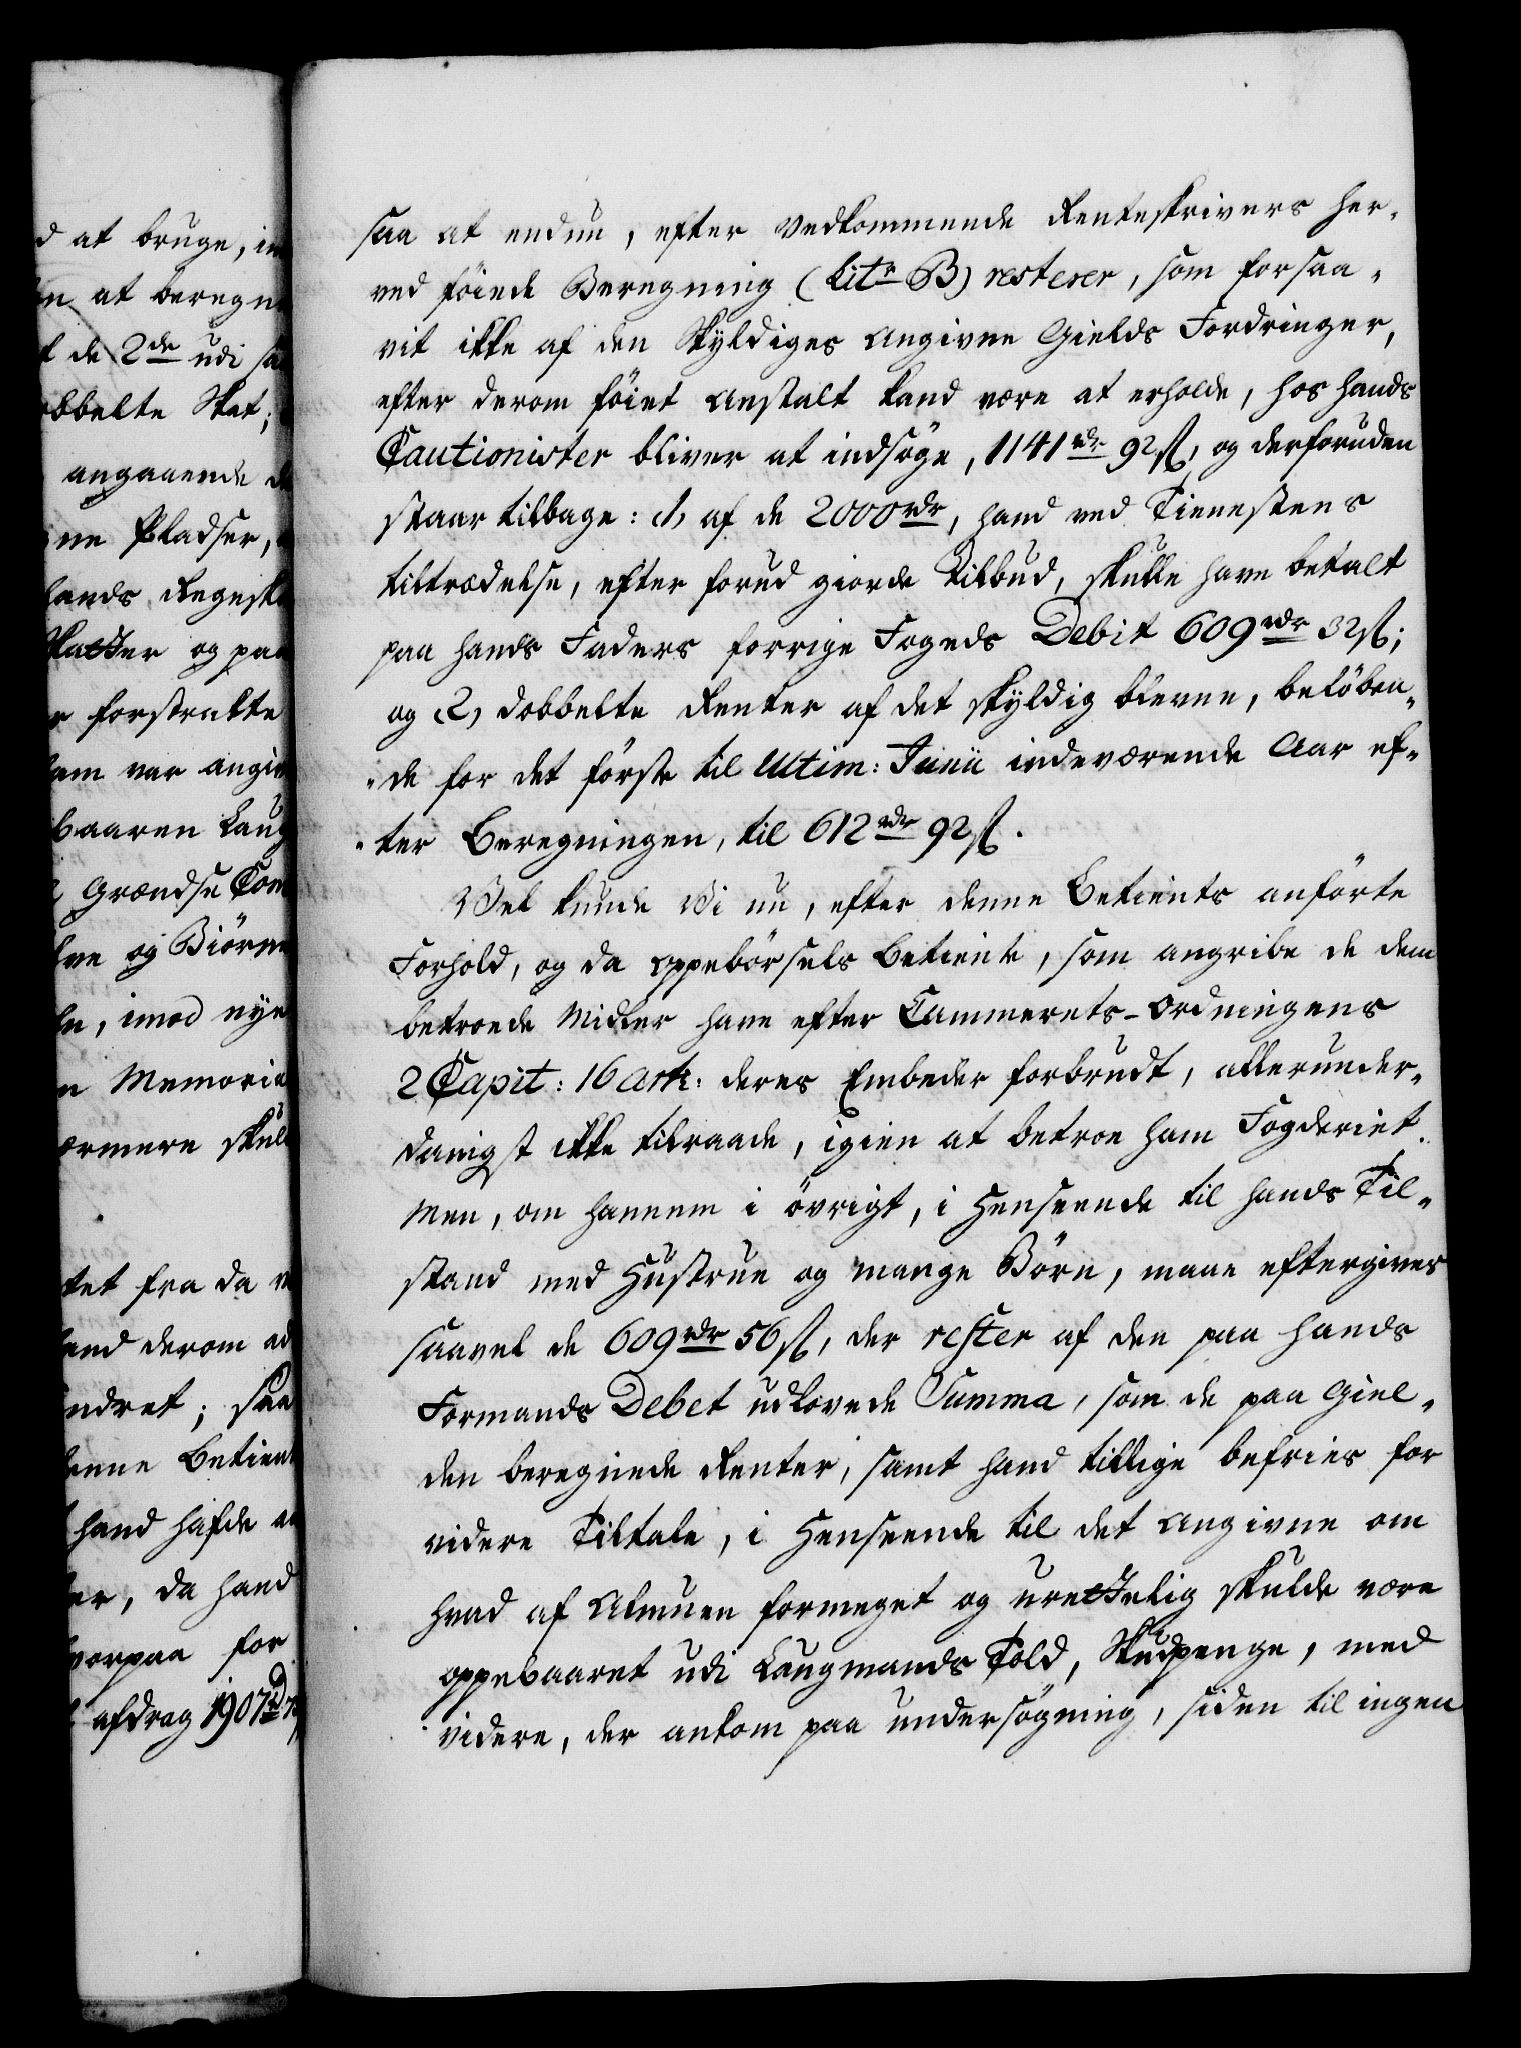 d at bruge, in
en at beregne
f de 2de udi sa
obbelte Skat;
angaaende d
ne Pladser,
hands Regensk
Skatter og paa
r forstrakte
ham var angiv
baaren Laug
Grændse Com
lve og Biörne
le, imod nye
n Memoria
ermere skul
tet fra da v
hand derom ad
ndret; saa
denne Betient
hand hafde a
er, da hand
vorpaa for
afdrag 1907rd
saa at endnu, efter vedkommende Renteskrivers her-
ved föiede Beregning (Litr B) resterer, som forsaa-
vit ikke af den Skyldiges angivne Gields Fordringer,
efter derom föiet Anstalt kand være at erholde, hos hands
Cautionister bliver at indsöge, 1141rdr 92s, og derforuden
staar tilbage: 1, af de 2000rdr, hand ved Tienestens
tiltrædelse, efter forud giorde Tilbud, skulle have betalt
paa hands Faders forrige Fogeds Debit 609rdr 32s;
og 2, dobbelte Renter af det skyldig blevne, belöben-
-de for det förste til Ultim: Junii indeværende Aar ef-
-ter Beregningen, til 612rdr 92s.
Vel kunde Vi nu, efter denne Betients anförte
Forhold, og da oppebörsels Betiente, som angribe de dem
betroede Midler have efter Cammerets-Ordningens
2 Capit: 16 Art: deres Embeder forbrudt, allerunder-
danigst ikke tilraade, igien at betroe ham Fogderiet.
Men, om hannem i övrigt, i Henseende til hands Til-
stand med Hustrue og mange Börn, maae eftergives
saavel de 609rdr 56s, der rester af den paa hands
Formands Debet udlovede Summa, som de paa Giel-
den beregnede Renter, samt hand tillige befries for
videre Tiltale, i Henseende til det angivne om
hvad af Almuen formeget og urettelig skulde være
oppebaaret udi Laugmands Told, Skudspenge, med
videre, der ankom paa undersögning, siden til ingen